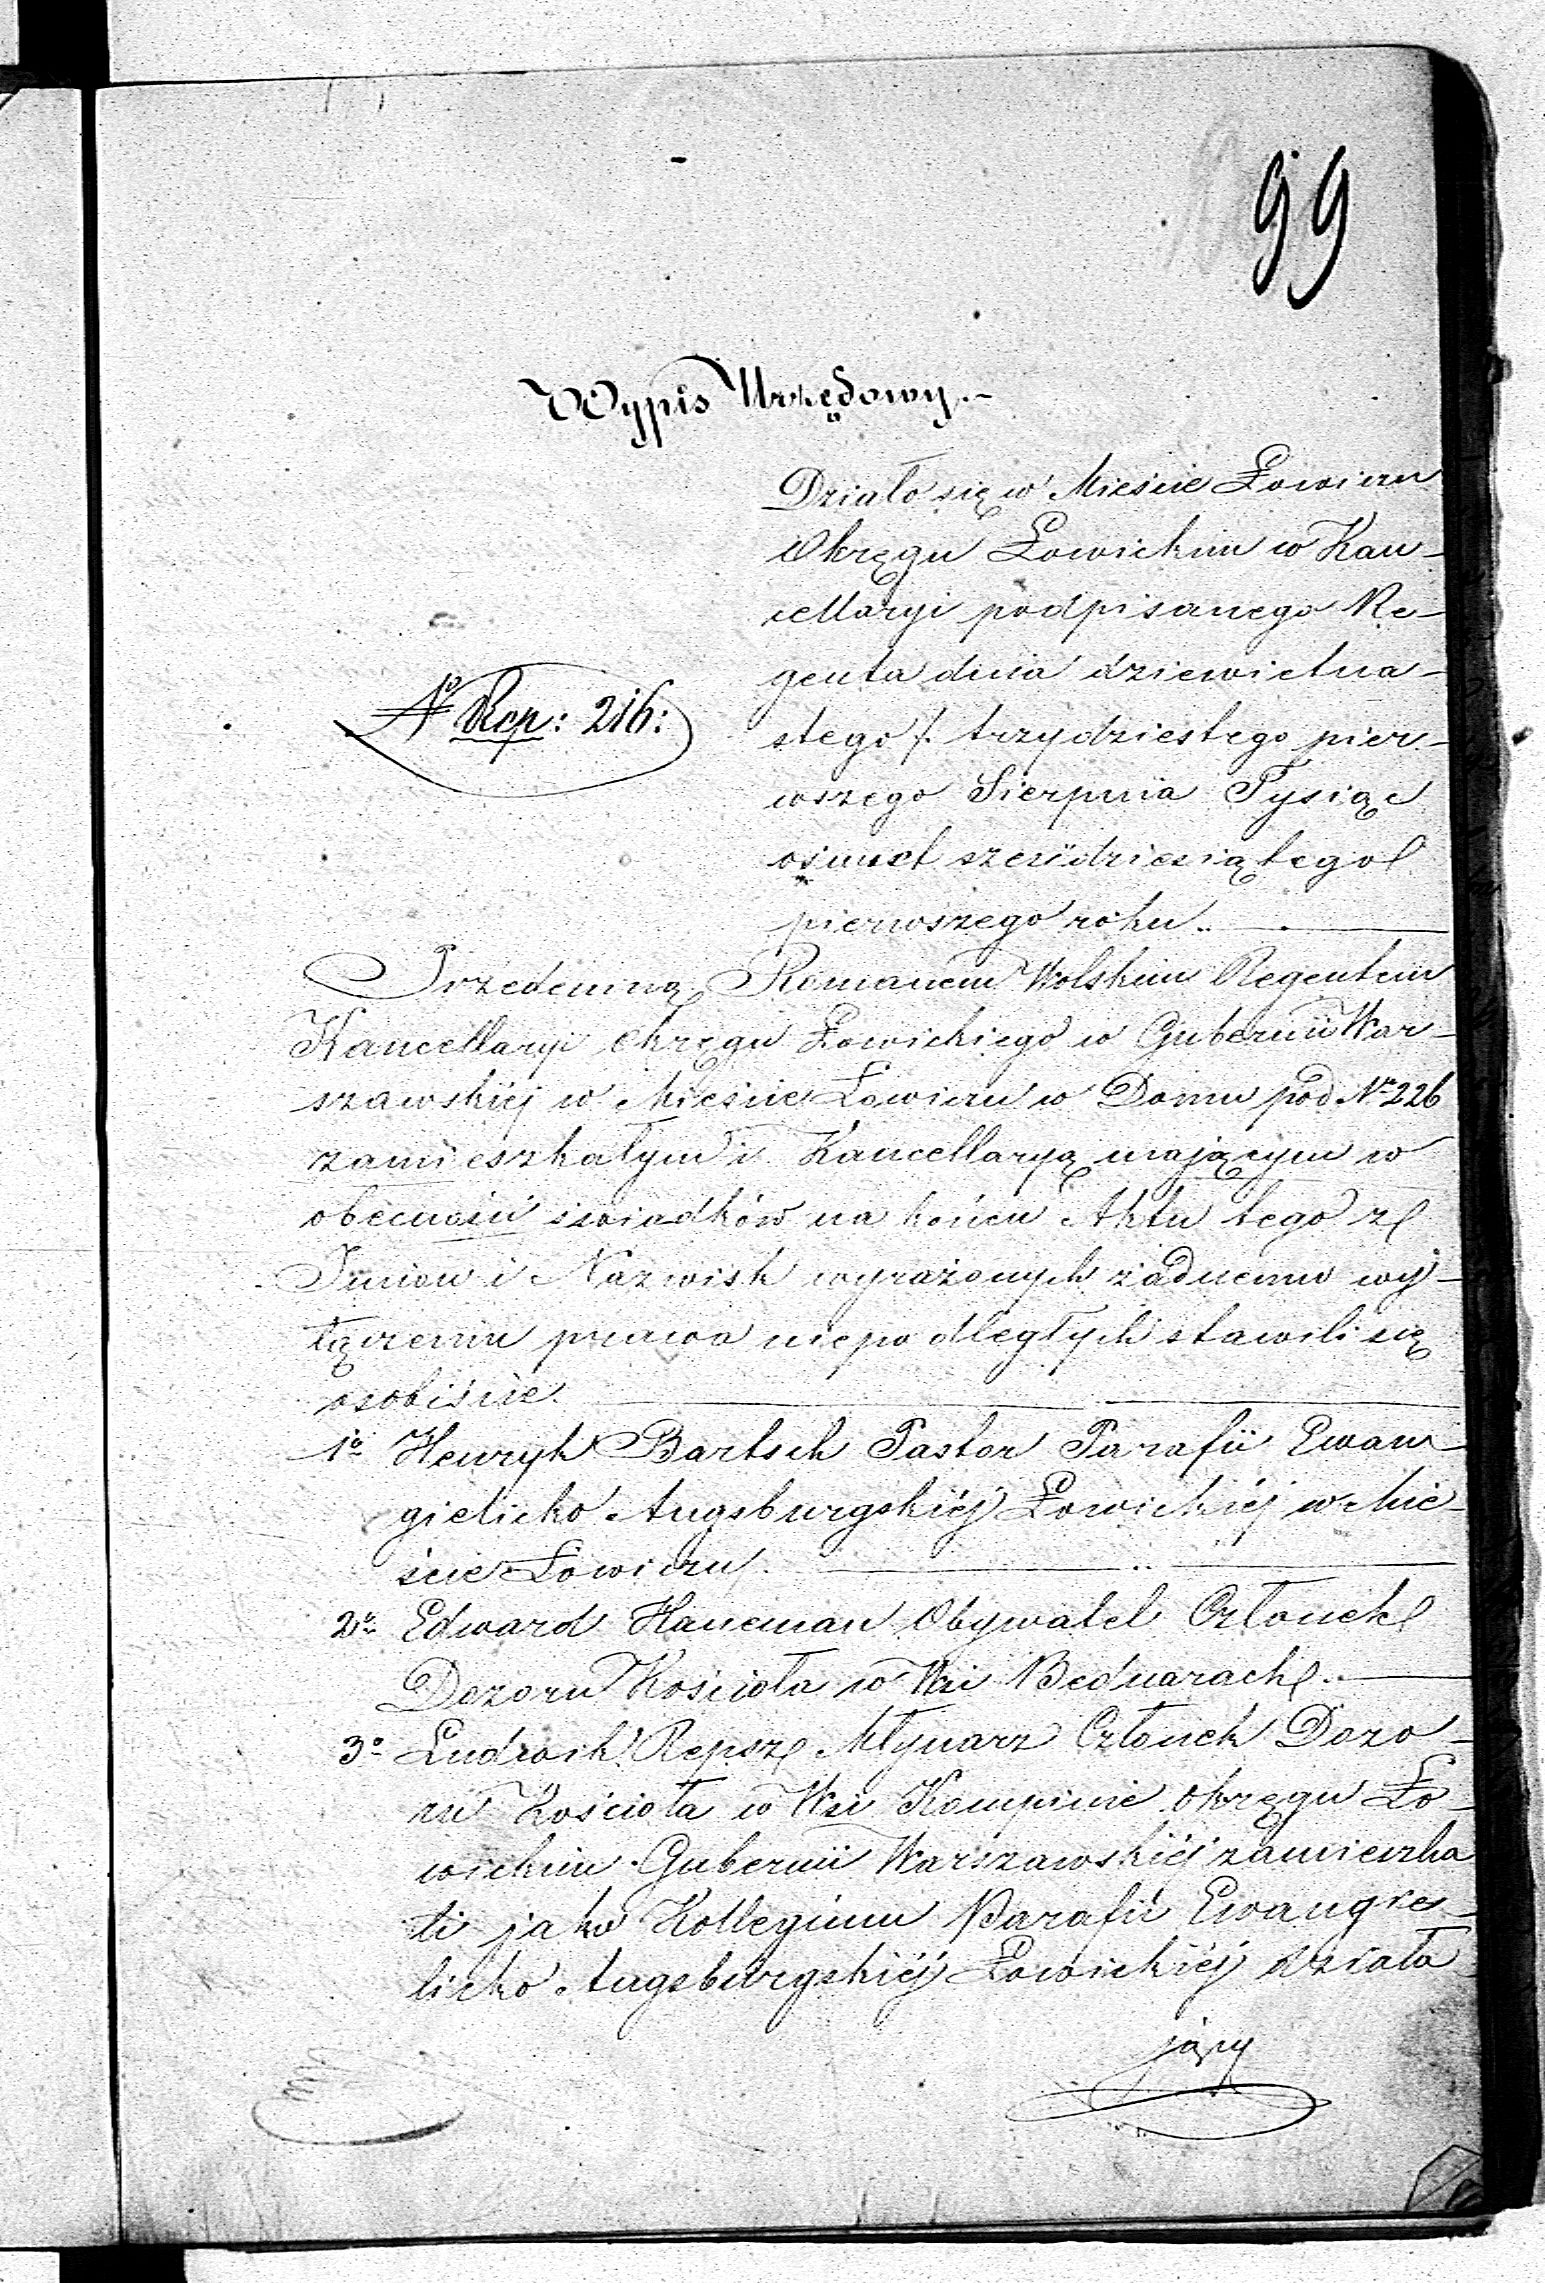 99
Wypis Urzędowy.-
Działo się w Mieście Łowiczu
Okręgu Łowickim w Kan-
cellaryi podpisanego Re-
genta dnia dziewietna-
stego /. trzydziestego pier-
wszego Sierpnia Tysiąc
ośmset sześćdziesiątego
pierwszego roku..
No Rep: 216:
Przedemną Romanem Wolskim Regentem
Kancellaryi Okręgu Łowickiego w Gubernii War-
szawskiéj w Mieście Łowiczu w Domu pod No 226
zamieszkałym i Kancellaryą mającym w
obecności świadków na końcu Aktu tego z
Imion i Nazwisk wyrażonych żadnemu wy-
łączeniu prawa niepodległych stawili się
osobiście.
1o Henryk Bartsch Pastor Parafii Ewan-
gielicko Augsburgskiéj Łowickiéj w Mie-
ście Łowiczu.
2o Edward Haneman Obywatel Członek
Dozoru Kościoła w Wsi Bednarach.
3o Ludwik Repsz Młynarz Członek Dozo-
ru Kościoła w Wsi Kompinie Okręgu Ło-
wickim Gubernii Warszawskiéj zamieszka
li jako Kollegium Parafii Ewangie-
licko Augsburgskiéj Łowickiéj działa
jący